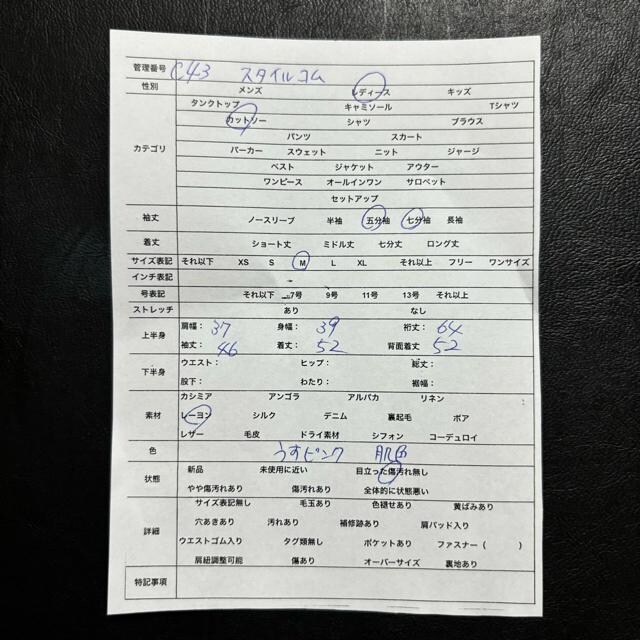 管理番号 C43 スタイルコム
性別 メンズ レディース キッズ
タンクトップ キャミソール Tシャツ
カットソー シャツ ブラウス
パンツ スカート
カテゴリ パーカー スウェット ニット ジャージ
ベスト ジャケット アウター
ワンピース オールインワン サロペット
セットアップ
袖丈 ノースリーブ 半袖 五分袖 七分袖 長袖
着丈 ショート丈 ミドル丈 七分丈 ロング丈
サイズ表記 それ以下 XS S M L XL それ以上 フリー ワンサイズ
インチ表記
号表記 それ以下 7号 9号 11号 13号 それ以上
ストレッチ あり なし
上半身 肩幅： 37 身幅： 39 裄丈： 64
袖丈： 46 着丈： 52 背面着丈 52
下半身 ウエスト： ヒップ： 総丈：
股下： わたり： 裾幅：
カシミア アンゴラ アルパカ リネン
素材 レーヨン シルク デニム 裏起毛 ボア
レザー 毛皮 ドライ素材 シフォン コーデュロイ
色 うすピンク 肌色
状態 新品 未使用に近い 目立った傷汚れ無し
やや傷汚れあり 傷汚れあり 全体的に状態悪い
サイズ表記無し 毛玉あり 色褪せあり 黄ばみあり
詳細 穴あきあり 汚れあり 補修跡あり 肩パッド入り
ウエストゴム入り タグ類無し ポケットあり ファスナー（ ）
肩紐調整可能 傷あり オーバーサイズ 裏地あり
特記事項